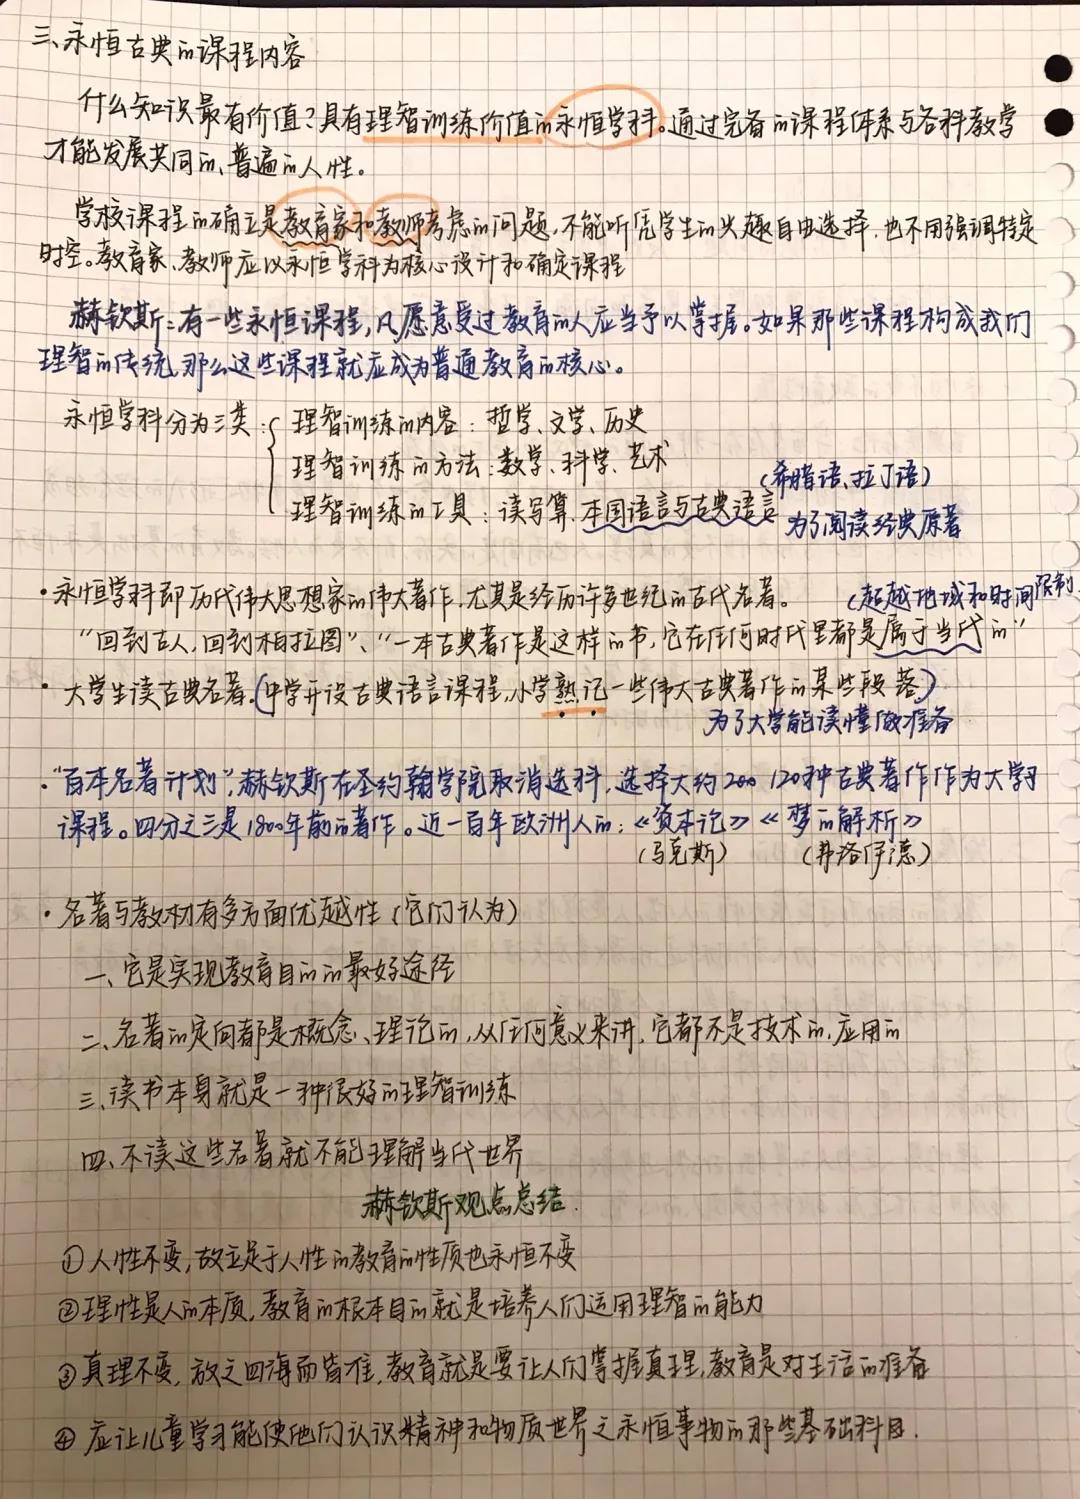 三、永恒古典的课程内容
什么知识最有价值?具有理智训练价值的永恒学科。通过完备的课程体系与各科教学
才能发展共同的、普遍的人性。
学校课程的确立是教育家和教师考虑的问题,不能听凭学生的兴趣自由选择,也不用强调特定
时空。教育家、教师应以永恒学科为核心设计和确定课程
赫钦斯:有一些永恒课程,凡愿意受过教育的人应当予以掌握。如果那些课程构成我们
理智的传统,那么这些课程就应成为普通教育的核心。
永恒学科分为三类:理智训练的内容:哲学、文学、历史
理智训练的方法:数学、科学、艺术
(希腊语、拉丁语)
理智训练的工具:读写算、本国语言与古典语言
为了阅读经典原著
·永恒学科即历代伟大思想家的伟大著作,尤其是经历许多世纪的古代名著。(超越地域和时间限制)
“回到古人,回到柏拉图”、“一本古典著作是这样的书,它在任何时代里都是属于当代的”
·大学生读古典名著。(中学开设古典语言课程,小学熟记一些伟大古典著作的某些段落)
为了大学能读懂做准备
·“百本名著计划”,赫钦斯在圣约翰学院取消选科,选择大约200 120种古典著作作为大学
课程。四分之三是1800年前的著作。近一百年欧洲人的:《资本论》《梦的解析》
(马克斯) (弗洛伊德)
·名著与教材有多方面优越性(它们认为)
一、它是实现教育目的的最好途径
二、名著的定向都是概念、理论的,从任何意义来讲,它都不是技术的,应用的
三、读书本身就是一种很好的理智训练
四、不读这些名著就不能理解当代世界
赫钦斯观点总结.
①人性不变,故立足于人性的教育的性质也永恒不变
②理性是人的本质,教育的根本目的就是培养人们运用理智的能力
③真理不变,放之四海而皆准,教育就是要让人们掌握真理,教育是对生活的准备
④应让儿童学习能使他们认识精神和物质世界之永恒事物的那些基础科目.